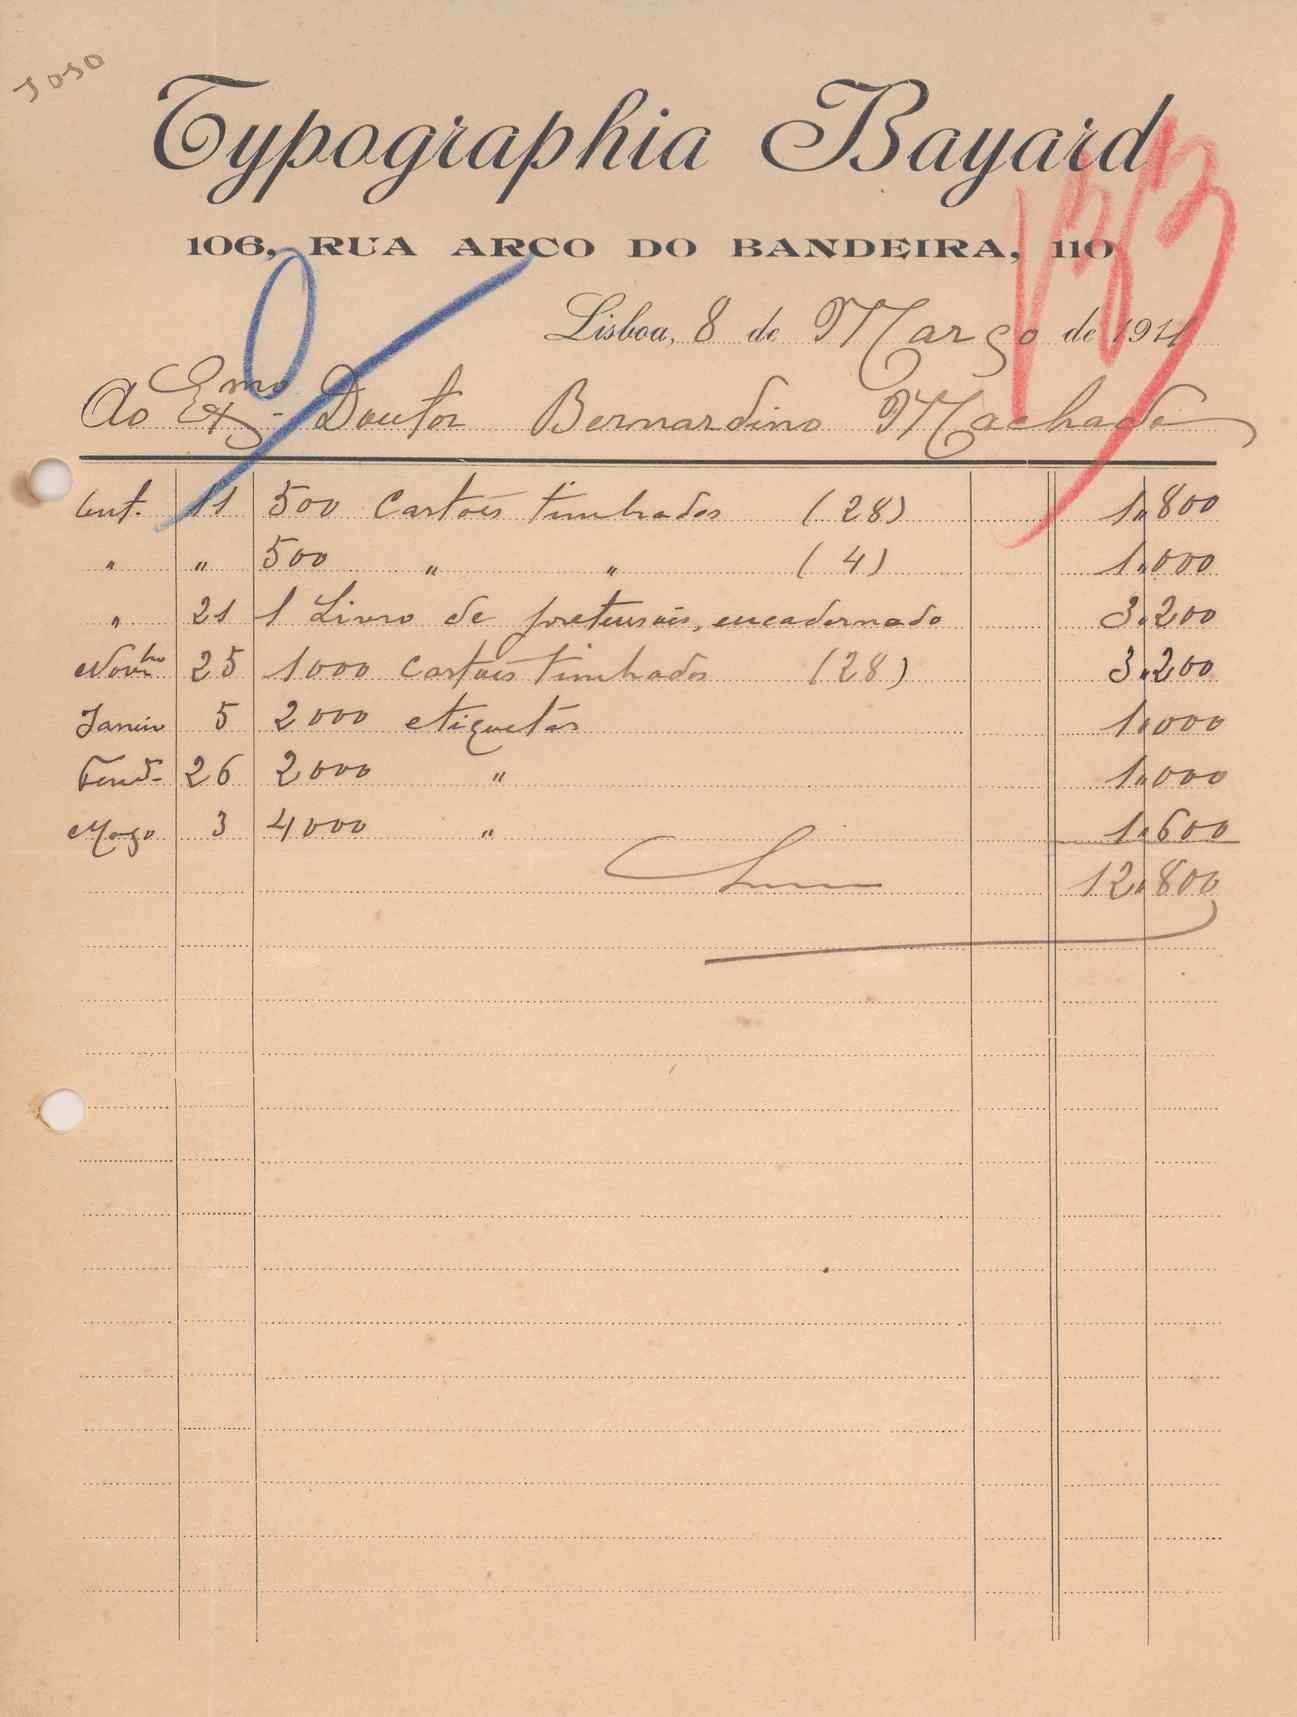 Typographia Bayard
106, RUA ARCO DO BANDEIRA, 110
Lisboa, 8 de Março de 1911
Ao Exmo Doutor Bernardino Machado
Out. 11 500 Cartões timbrados (28) 1"800
" " 500 " " (4) 1"000
" 21 1 Livro de pretensões, encadernado 3"200
Novbro 25 1000 Cartões timbrados (28) 3"200
Janeiro 5 2000 etiquetas 1"000
26 2000 " 1"000
Março 3 4000 " 1"600
12"800